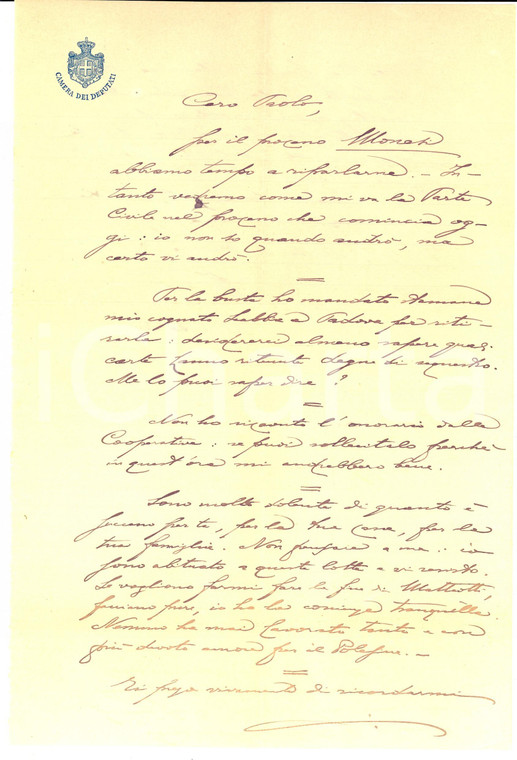 CAMERA DEI DEPUTATI
Caro Paolo,
per il processo Monesi
abbiamo tempo a riparlarne. – In-
tanto vedremo come mi va la Parte
Civile nel processo che comincia og-
gi: io non so quando andrò, ma
certo vi andrò.
Per la busta ho mandato
mio cognato a Padova per riti-
rarla: desidererei almeno sapere quali
carte ritenute degne di sequestro.
Me lo puoi saper dire?
Non ho ricevuto l'onorario dalla
Cooperativa: se puoi sollecitalo perchè
in quest'ora mi andrebbero bene.
Sono molto dolente di quanto è
per te, per la tua casa, per la
tua famiglia. Non pensare a me: io
sono abituato a queste lotte e vi resisto.
Se vogliono farmi fare la fine di Matteotti,
facciano pure, io ho la coscienza tranquilla.
Nessuno ha mai lavorato tanto e con
più devoto amore per il Polesine. –
Ti prego vivamente di ricordarmi
iCharta